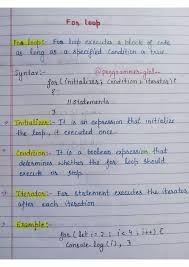 For loop
For loop:- For loop executes a block of code
as long as a specified condition is true.
Syntax:- @programmer_girl_
for (initializer; condition; iterator)
{
// statements
}
→ Initializer:- It is an expression that initialize
the loop, it executed once.
→ Condition:- It is a boolean expression that
determines whether the for loop should
execute or stop.
→ Iterator:- For statement executes the iterator
after each iteration
→ Example:-
for (let i = 2; i < 4; i++) {
console.log(i), }